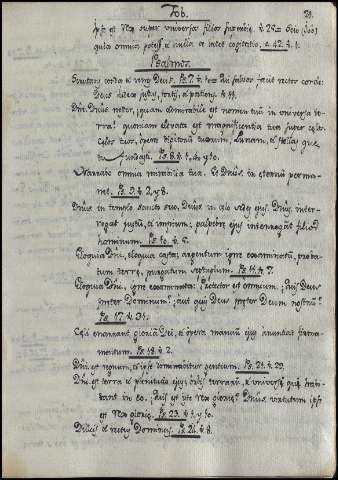 Job.
ipse est Rex super universos filios superbiæ. v. 25= Scio (Job)
quia omnia potes, et nulla te latet cogitatio. c. 42. v. 1.
Psalmos.
Scrutans corda et renes Deus. Ps. 7. v. 10= qui salvos facit rectos corde:
Deus judex justus, fortis, et patiens. v. 11.
Dñe Dñus noster, quam admirabile est nomen tuũ in universa
terra! quoniam elevata est magnificentia tua super celos
Celos tuos, opera digitorũ tuorum, Lunam, et stellas que
tu fundasti. Ps. 8. v. 1, 4 y 10.
Narrabo omnia mirabilia tua. Et Dñus in eternũ permanet.
Ps. 9. v. 2, y 8.
Dñus in templo sancto suo. Dñus in celo sedes ejus. Dñus interrogat
justũ, et impium; palpebre ejus interrogãt filios
hominum. Ps. 10. v. 5.
Eloquia Dñi, eloquia casta; argentum igne examinatũ, probatum
terre, purgatum septuplum. Ps. 11. v. 7.
Eloquia Dñi, igne examinata: Protector est omnium; quis Deus
preter Dominum? aut quis Deus preter Deum nostrũ?
Ps. 17. v. 31.
Celi enarrant gloriã Dei, et opera manuũ ejus anuntiat firmamentum.
Ps. 18. v. 2.
Dñi est regnum, et ipse dominabitur gentium. Ps. 21. v. 29.
Dñi est terra et plenitudo ejus; orbis terrarũ, et universi qui habitant
in eo. Quis est iste Rex glorie? Dñus virtutum ipse
est Rex glorie. Ps. 23. v. 1. y 10.
Dulcis et rectus Dominus. Ps. 24. v. 8.